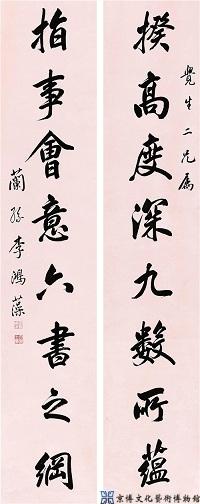 覺生二兄屬
揆高度深九數所蘊
指事會意六書之綱
蘭孫李鴻藻
京博文化藝術博物館